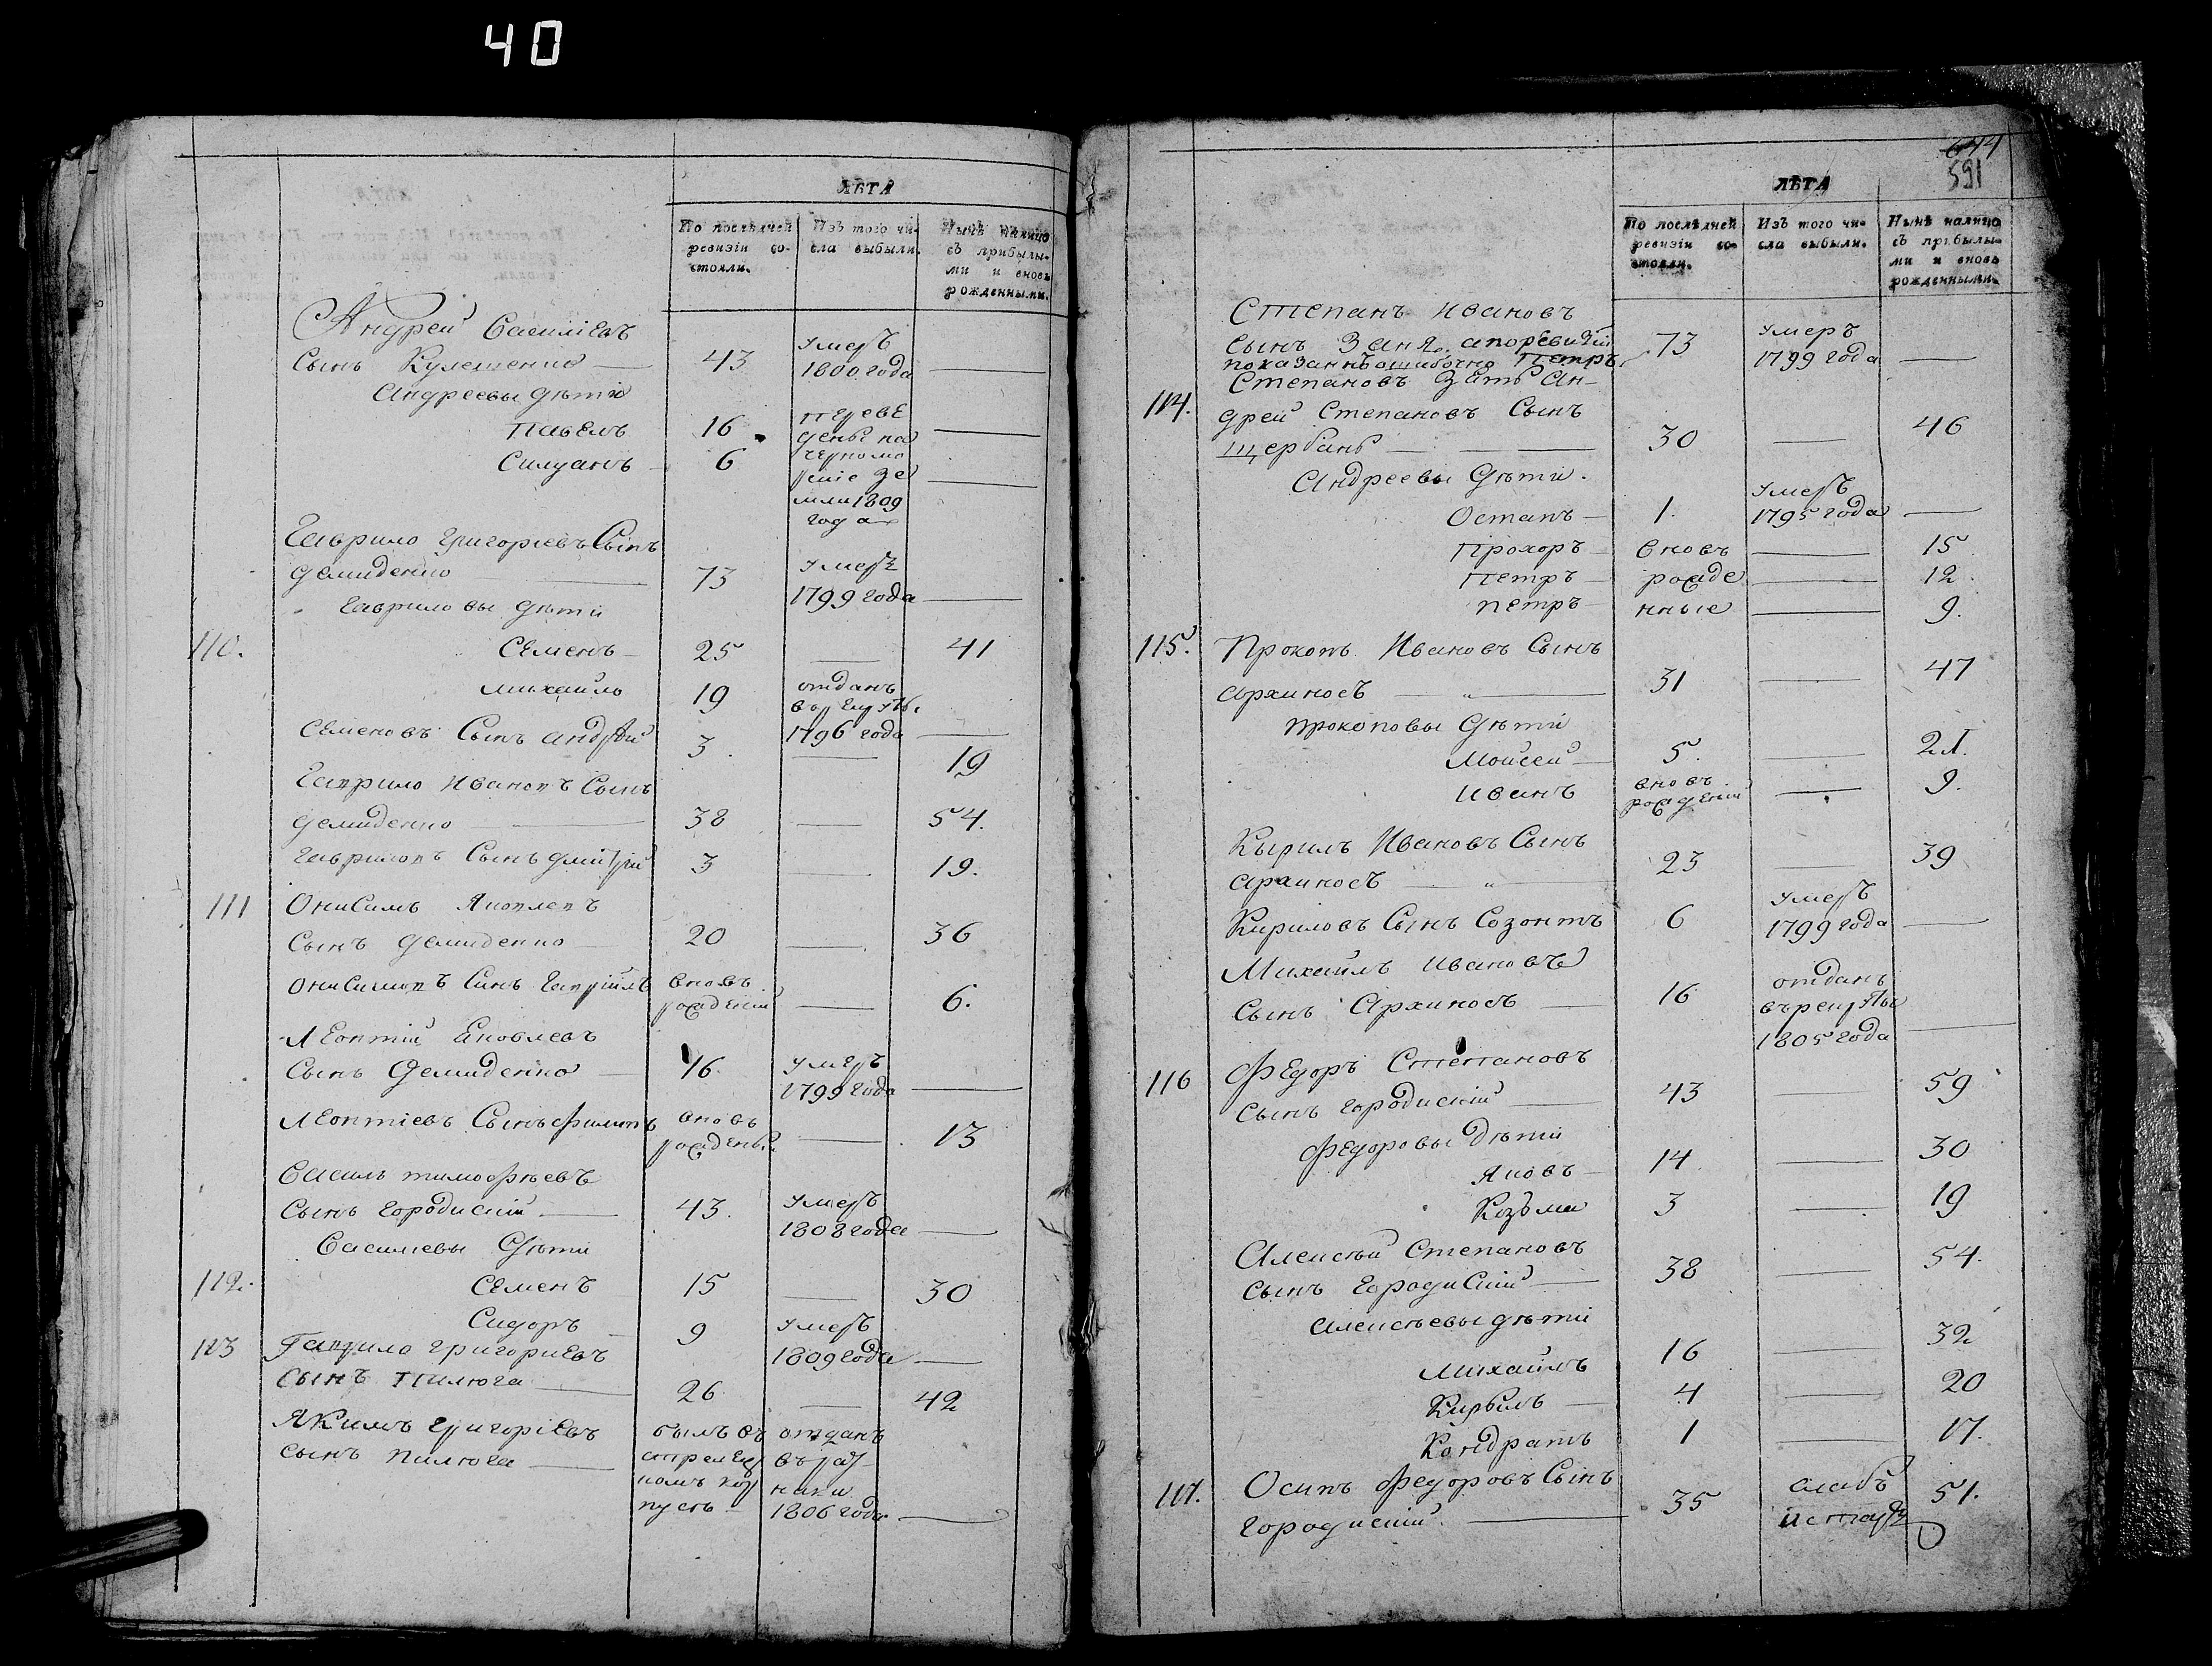 40
ЛѢТА
По послѣдней ревизіи состояли.
Изъ того числа выбыли.
Нынѣ налицо съ прибылыми и вновь рожденными.
Андрей Василіевъ
умеръ
сынъ Кулешенко 43 1800 года —
Андреевы дѣти
Павелъ 16 переве
дены на —
Силуанъ 6 черномо
рскіе зе —
мли 1809
года
Гаврило Григоріевъ Сынъ
умеръ
демиденко — 73 1799 года —
Гавриловы дѣти
110. Семенъ 25 — 41
михайло 19 отданъ
въ рекруты
1796 года —
Семеновъ Сынъ андрей 3. — 19
Гаврило Ивановъ Сынъ
демиденко — 38 — 54.
Гавриловъ Сынъ дмитрій 3 — 19.
111 Онисимъ Яковлевъ
Сынъ демиденко 20 — 36
Онисимовъ Синъ Гавріилъ вновь
рожденій — 6.
Леонтій Яковлевъ
Сынъ Демиденко — 46. умеръ
1799 года —
Леонтіевъ Сынъ Филипъ вновь
рожденый — 13
Василь тимофѣевъ
Сынъ городискій — 43. умеръ
1808 года —
Василіевы дѣти
112. Семенъ 15 — 30
Сидоръ 9 умеръ
1809 года —
113 Гаврило григориевъ
Сынъ Пилюга — 26 — 42
Якимъ григоріевъ былъ въ отданъ
сынъ пилюга — стрелец въ рат
комъ кор ники
пусѣ 1806 года —
644
591
ЛѢТА
По послѣдней ревизіи состояли.
Изъ того числа выбыли.
Нынѣ налицо съ прибылыми и вновь рожденными.
Степанъ Ивановъ
умеръ
сынъ 73 1799 года —
показанъ ошибочно Петръ
114. Степановъ Зять Ан-
дрей Степановъ Сынъ
Щербань — 30 — 46
Андреевы дѣти.
умеръ
Остапъ 1. 1795 года —
Прохоръ вновь — 15
Петръ рожде — 12.
петръ нные — 9.
115. Прокопъ Ивановъ Сынъ
архипосъ — 31 — 47
прокоповы дѣти
Мойсей 5. — 21.
Иванъ вновь
рожденій — 9.
Кырилъ Ивановъ Сынъ
архипосъ — 23 — 39
Кириловъ Сынъ Созонтъ 6 умеръ
1799 года —
Михаилъ ивановъ
сынъ Архипосъ — 16 отданъ
въ рекруты
1805 года —
116 Федоръ Степановъ
Сынъ городискій — 43 — 59
Федоровы Дѣти
Яковъ 14 — 30
Козъма 3 — 19
Алексѣй Степановъ
сынъ Городискій — 38 — 54.
Алексѣевы дѣти
Михаилъ 16 — 32
Кирылъ 4 — 20
Кондратъ 1 — 17.
117. Осипъ Федоровъ Сынъ слабъ
городискій. — 35 и старъ 51.